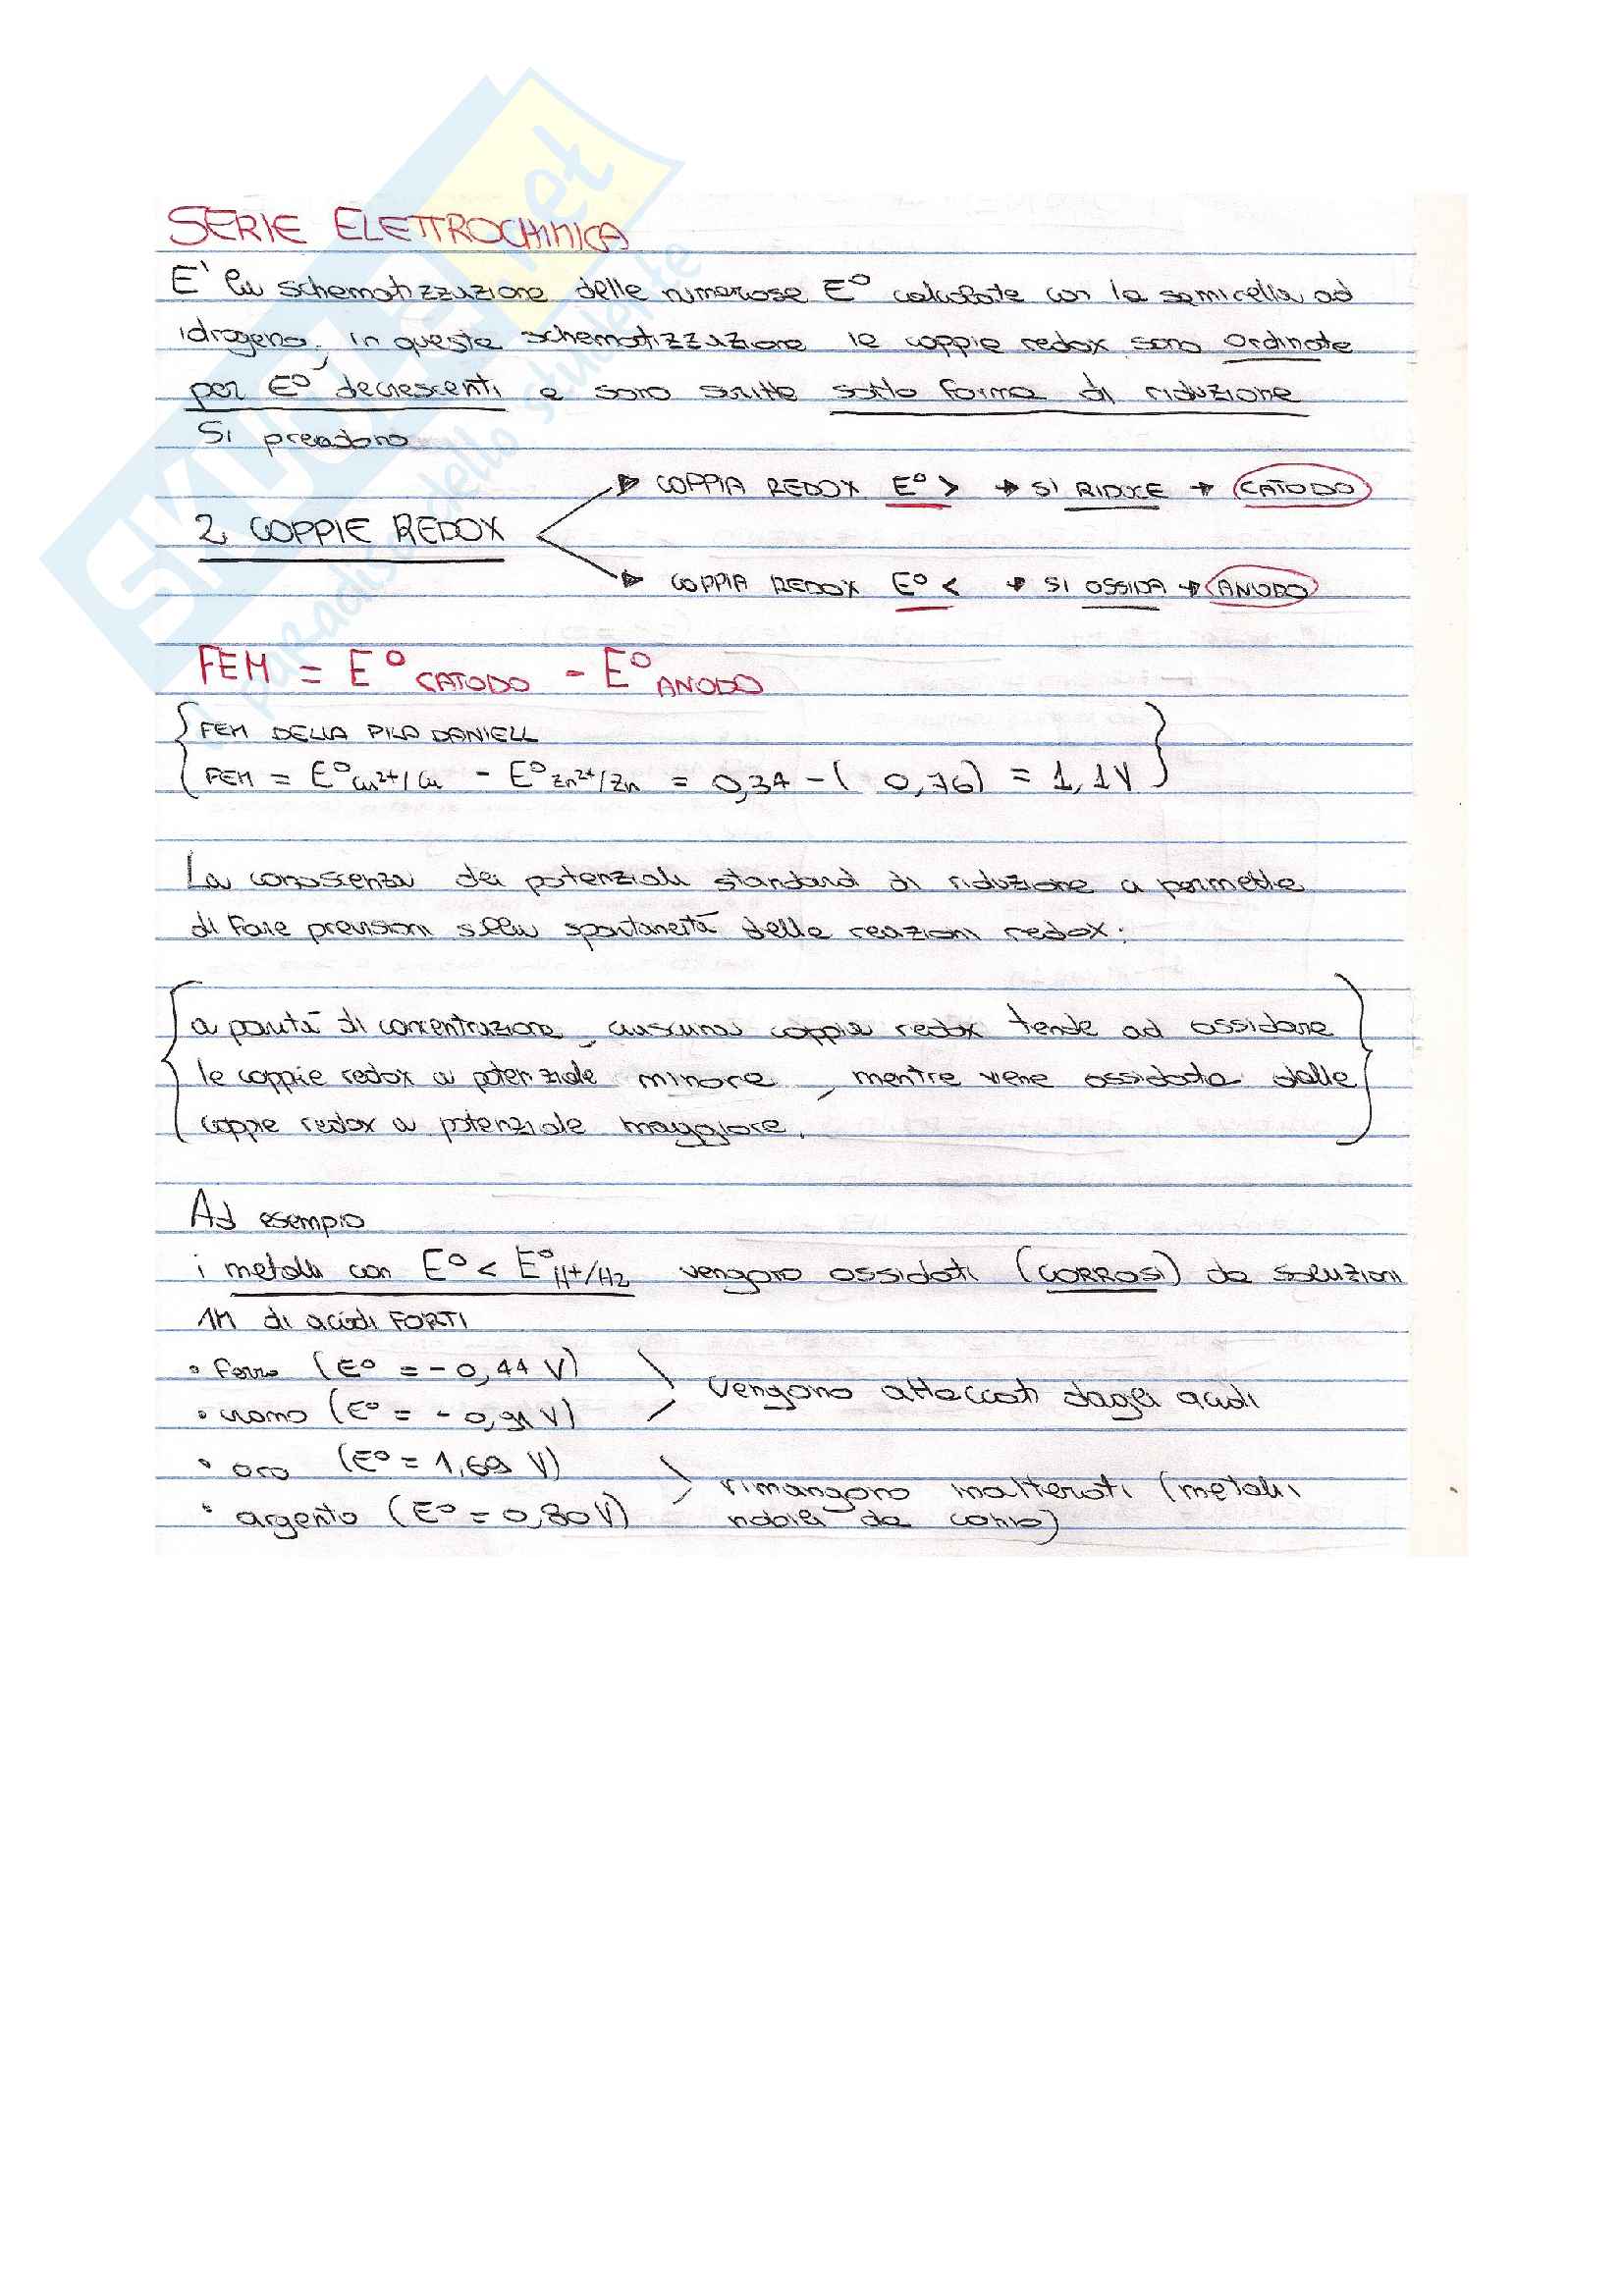 SKUOLA.net
il paradiso dello studente
SERIE ELETTROCHIMICA
E' la schematizzazione delle numerose E° calcolate con la semicella ad
idrogeno, in questa schematizzazione le coppie redox sono ordinate
per E° decrescenti e sono scritte sotto forma di riduzione
Si prendono
COPPIA REDOX E° > → SI RIDUCE → CATODO
2 COPPIE REDOX
COPPIA REDOX E° < → SI OSSIDA → ANODO
FEM = E° CATODO - E° ANODO
FEM DELLA PILA DANIELL
FEM = E° Cu²⁺/Cu - E° Zn²⁺/Zn = 0,34 - ( 0,76) = 1,1V
La conoscenza dei potenziali standard di riduzione ci permette
di fare previsioni sulla spontaneità delle reazioni redox:
a parità di concentrazione, ciascuna coppia redox tende ad ossidare
le coppie redox a potenziale minore, mentre viene ossidata dalle
coppie redox a potenziale maggiore.
Ad esempio
i metalli con E° < E° H⁺/H2 vengono ossidati (CORROSI) da soluzioni
1M di acidi FORTI
• ferro (E° = - 0,44 V)
• cromo (E° = - 0,91 V)
vengono attaccati dagli acidi
• oro (E° = 1,69 V)
• argento (E° = 0,80 V)
rimangono inalterati (metalli
nobili da conio)